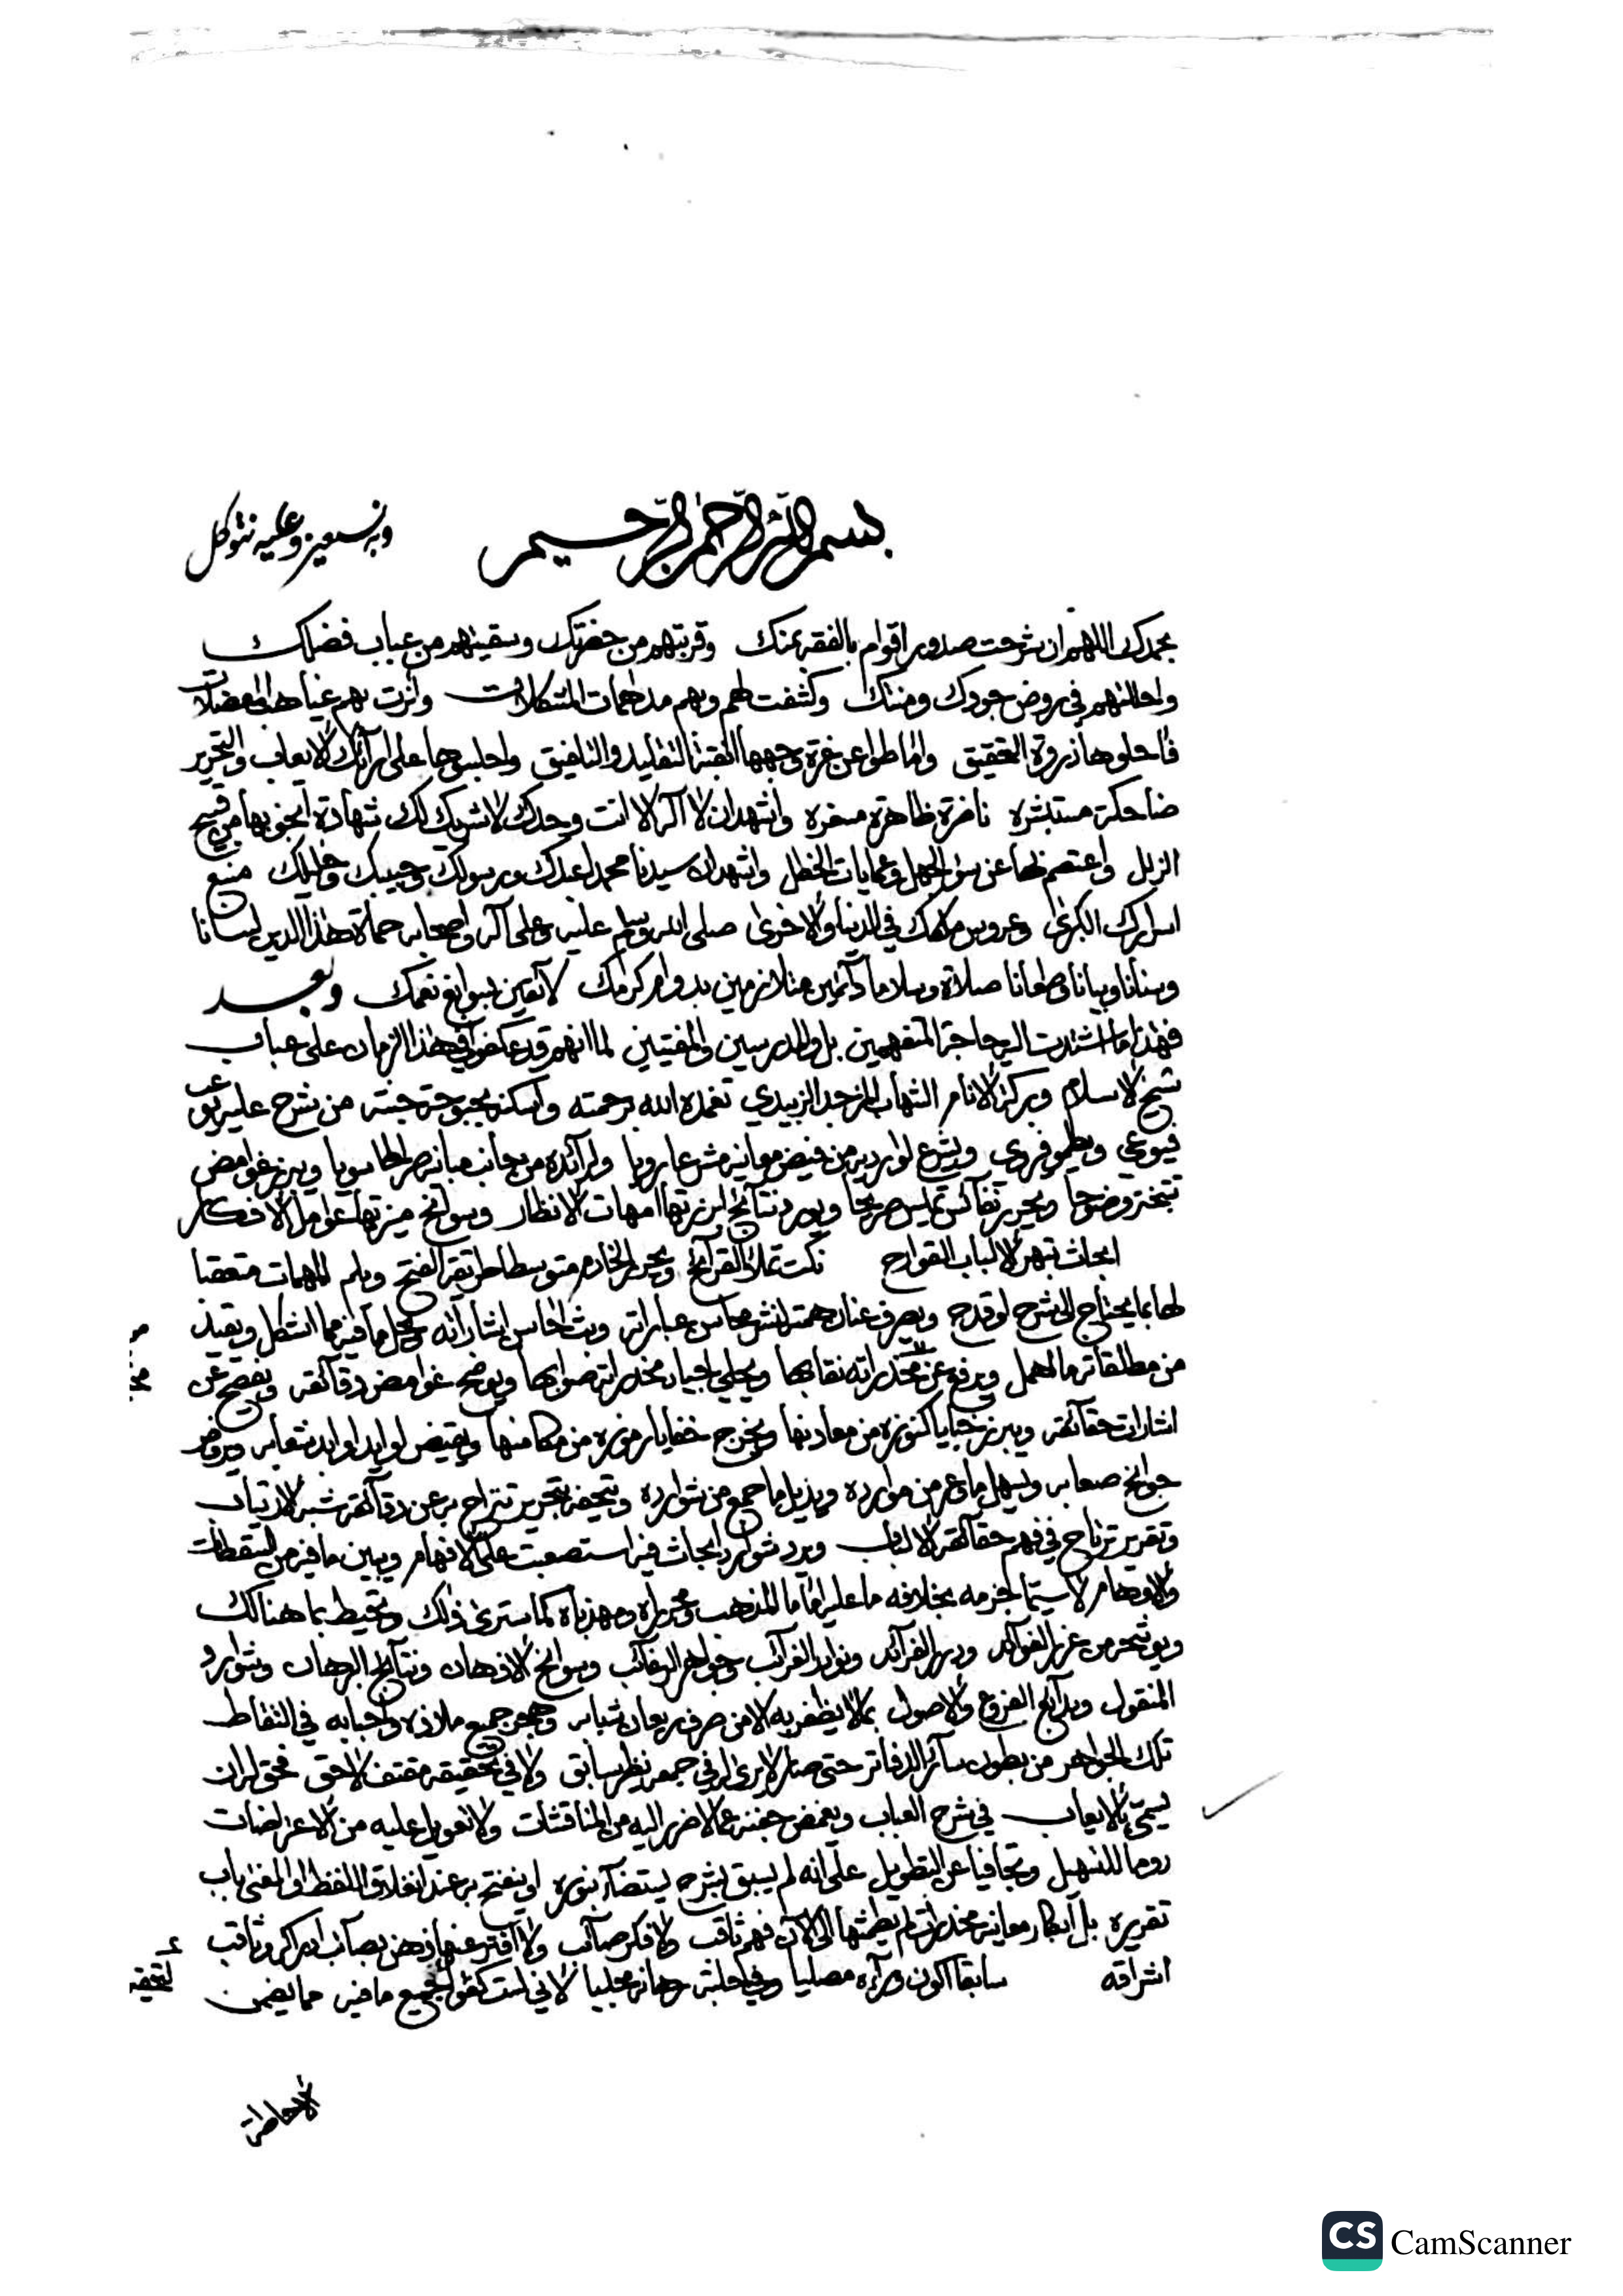 بسم الله الرحمن الرحيم وبه نستعين وعليه نتوكل
نحمدك اللهم ان شرحت صدور اقوام بالفقه بمنك وقربتهم من حضرتك وسقيتهم من عباب فضلك
واحللتهم في روض جودك ومنتك وكشفت لهم وبهم مدلهمات المشكلات وانرت بهم غياهب المعضلات
فاحلوها ذروة التحقيق واماطوا عن غرة وجهها انقبة التقليد والتلفيق واجلسوها على ارائك الايعاب والتحرير
ضاحكة مستبشره ناضرة ظاهرة مسفره واشهد ان لا اله الا انت وحدك لا شريك لك شهادة انجو بها من قبيح
الزلل واعتصم بها عن الجهل وعمايات الخطل واشهد ان سيدنا محمدا عبدك ورسولك وحبيبك وخليلك منبع
اسرارك الكبرى وعروس ملكك في الدنيا والاخرى صلى الله وسلم عليه وعلى آله واصحابه حماة هذا الدين لسانا
وسنانا وبيانا وطعانا صلاة وسلاما دائمين متلازمين بدوام كرمك لائقين بسوابغ نعمك وبعد
فهذا ما اشتدت اليه حاجة المتفهمين بل والمدرسين والمفتيين لما انهم قد عكفوا في هذا الزمان على عباب
شيخ الاسلام وبركة الانام الشهاب المزجد الزبيدي تغمده الله برحمته واسكنه بحبوحة جنته من شرح عليه
ويشرع لوارديه من فيض معانيه مشرعا رويا ولرائده من مبانيه ويبرز غوامض
تتبختر وضوحا ويحرر نفائس تميس ويورد نتائج ابرزتها امهات الانظار وسوانح ميزتها عوامل الافكار
ابحاث تبهر الالباب القوارح نكت تملأ القرائح متوسطا طريقة الفتح ويلم المهمات متعقبا
لها بما يحتاج الى شرح لو قدح ويصرف عنان همته لنشر محاسن عباراته وبث اشاراته ويحل ما فيه مما اشكل ويقيد
من مطلقاته ما اهمل ويرفع عن مخدراته نقابها ويوضح غوامض دقائقه ويفصح عن
اشارات حقائقه ويبرز خبايا كنوزه من معادنها ويخرج خفايا رموزه من مكامنها ويقتنص اوابد شعابه ويروض
جوامح صعابه ويسهل ما وعر من موارده ويذيل ما جمع من شوارده ويتحفه بتحرير تنزاح به عن دقائقه شبه الارتياب
وتقرير ترتاح في فهم حقائقه الالباب ويرد شوارد ابحاث فيه استصعبت على الافهام ويبين ما فيه من السقطات
والاوهام لا سيما لجزمه بخلافه ما عليه اماما المذهب ومحرراه ومهذباه كما سترى ذلك وتحيط بما هنالك
ويوشحه من غرر الفوائد ودرر الفرائد ونوادر الغرائب وجواهر الرغائب وسوانح الاذهان ونتائج البرهان وشوارد
المنقول وبدائع الفروع والاصول بما لا يظفر به الا من صرف ريعان شبابه وهجر جميع ملاذه واحبابه في التقاط
تلك الجواهر من بطون سائر الدفاتر حتى صار لا يرى له في جمعه نظير سابق ولا في تحقيقه مقتف لاحق فحق له ان
يسمى بالايعاب في شرح العباب ويغمض جفنه عما لا ضرر اليه من المناقشات ولا تعويل عليه من الاعتراضات
روما للتسهيل وتجافيا عن التطويل على انه لم يسبق بشرح يستضاء بنوره او ينفتح به عند انغلاق اللفظ او المعنى باب
تقريره بل ابكار معانيه مخدرات لم يطمثها الى الآن فهم ثاقب ولا فكر صائب ولا افتر عنها ذهن بصائب ادراكه وثاقب
اشراقه سابقا اكون وراءه مصليا وفي حلبة رهانه مجليا لاني لست كفؤا لجميع ما فيه مما يضمن
لتحقيقه
للاحاطة
CS CamScanner